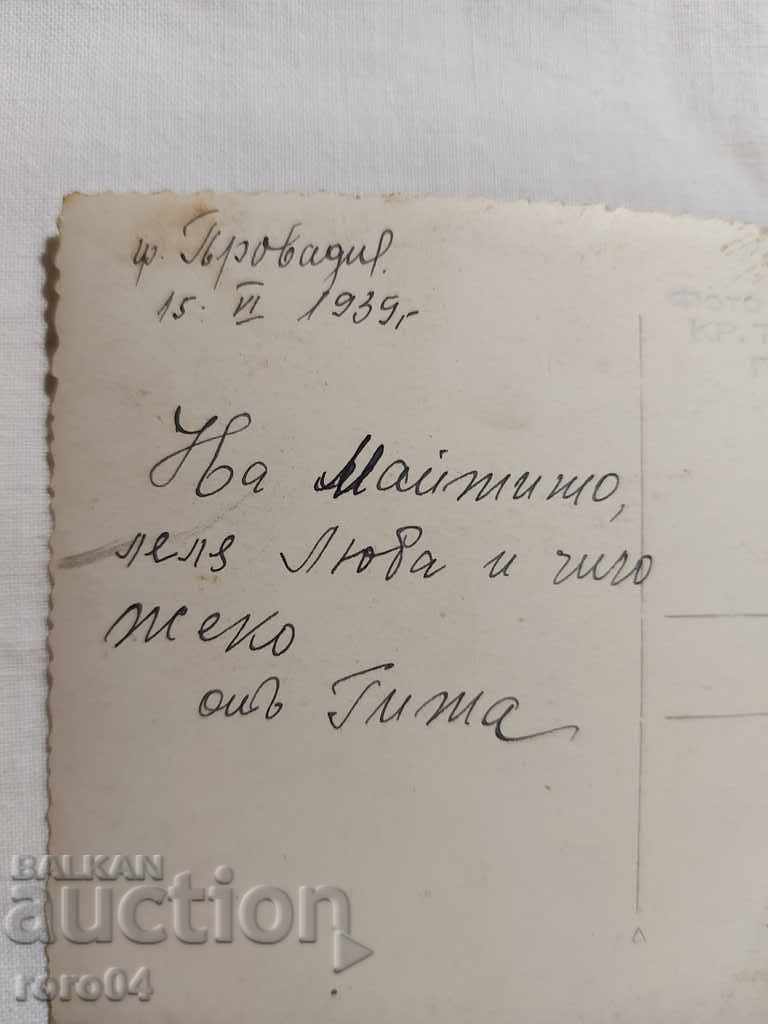 гр. Провадия.
15. VI 1939 г.
Фото
КР. Т
На
леля Люба и чичо
Жеко
отъ Гижа
BALKAN
auction
roro04